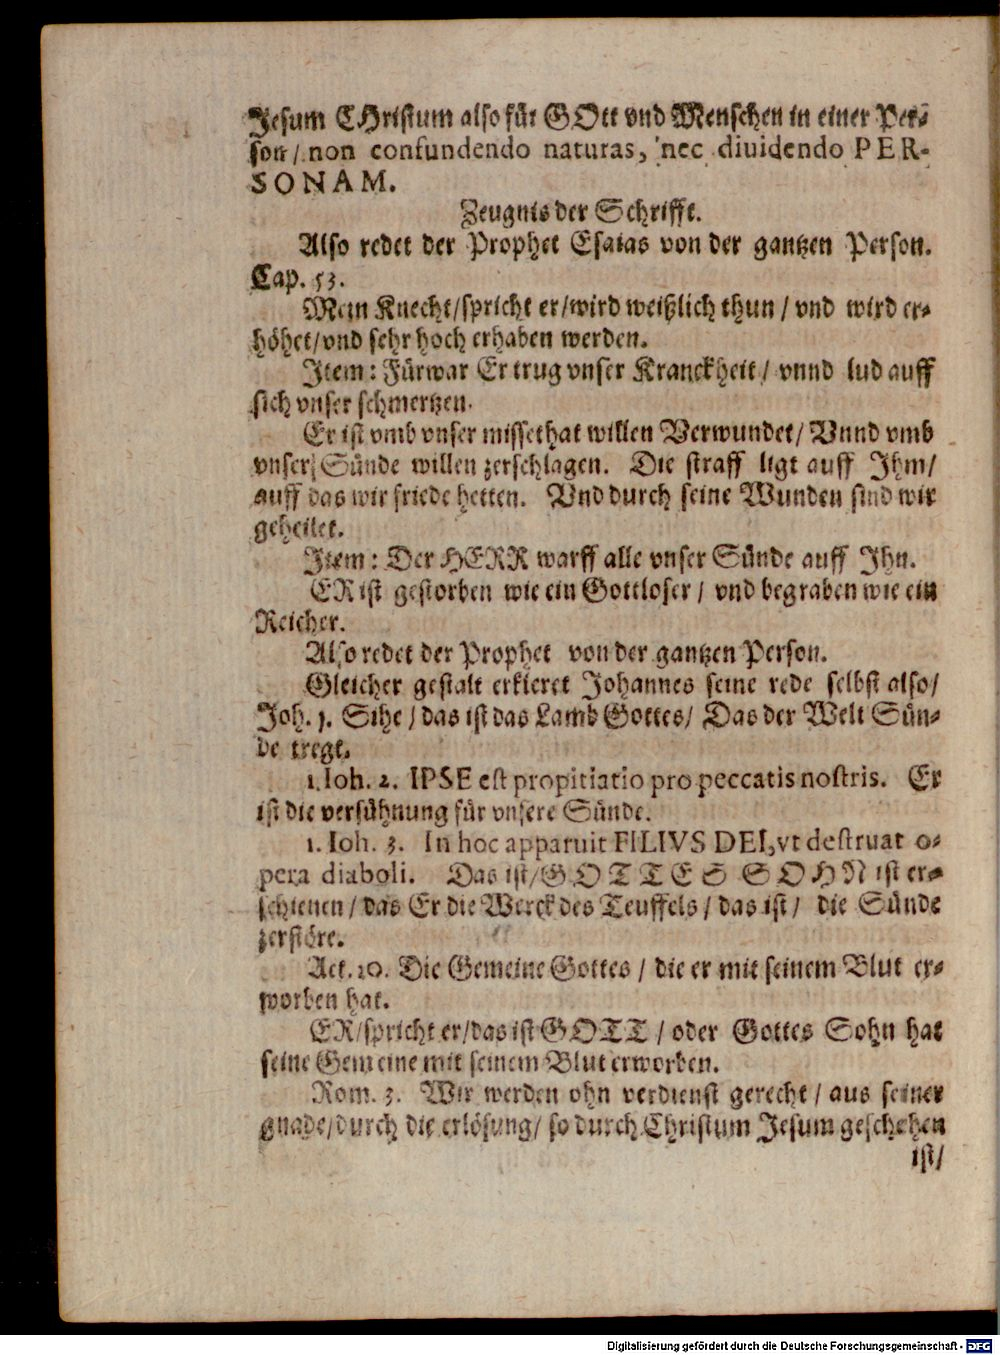 Jesum CHristum also für GOtt vnd Menschen in einer Per-
son/ non confundendo naturas, nec diuidendo PER-
SONAM.
Zeugnis der Schrifft.
Also redet der Prophet Esaias von der gantzen Person.
Cap. 53.
Mein Knecht/spricht er/wird weißlich thun / vnd wird er-
höhet/vnd sehr hoch erhaben werden.
Item : Fürwar Er trug vnser Kranckheit / vnnd lud auff
sich vnser schmertzen.
Er ist vmb vnser missethat willen Verwundet/ Vnnd vmb
vnser Sünde willen zerschlagen. Die straff ligt auff Ihm/
auff das wir friede hetten. Vnd durch seine Wunden sind wir
geheilet.
Item : Der HERR warff alle vnser Sünde auff Ihn.
ER ist gestorben wie ein Gottloser / vnd begraben wie ein
Reicher.
Also redet der Prophet von der gantzen Person.
Gleicher gestalt erkleret Johannes seine rede selbst also/
Joh. 1. Sihe / das ist das Lamb Gottes/ Das der Welt Sün-
de tregt.
1. Ioh. 2. IPSE est propitiatio pro peccatis nostris. Er
ist die versühnung für vnsere Sünde.
1. Ioh. 3. In hoc apparuit FILIVS DEI, vt destruat o-
pera diaboli. Das ist/GOTTES SOHN ist er-
schienen / das Er die Werck des Teuffels / das ist / die Sünde
zerstöre.
Act. 20. Die Gemeine Gottes / die er mit seinem Blut er-
worben hat.
ER/spricht er/das ist GOTT / oder Gottes Sohn hat
seine Gemeine mit seinem Blut erworben.
Rom. 3. Wir werden ohn verdienst gerecht / aus seiner
gnade/durch die erlösung/ so durch Christum Jesum geschehen
ist/
Digitalisierung gefördert durch die Deutsche Forschungsgemeinschaft - DFG